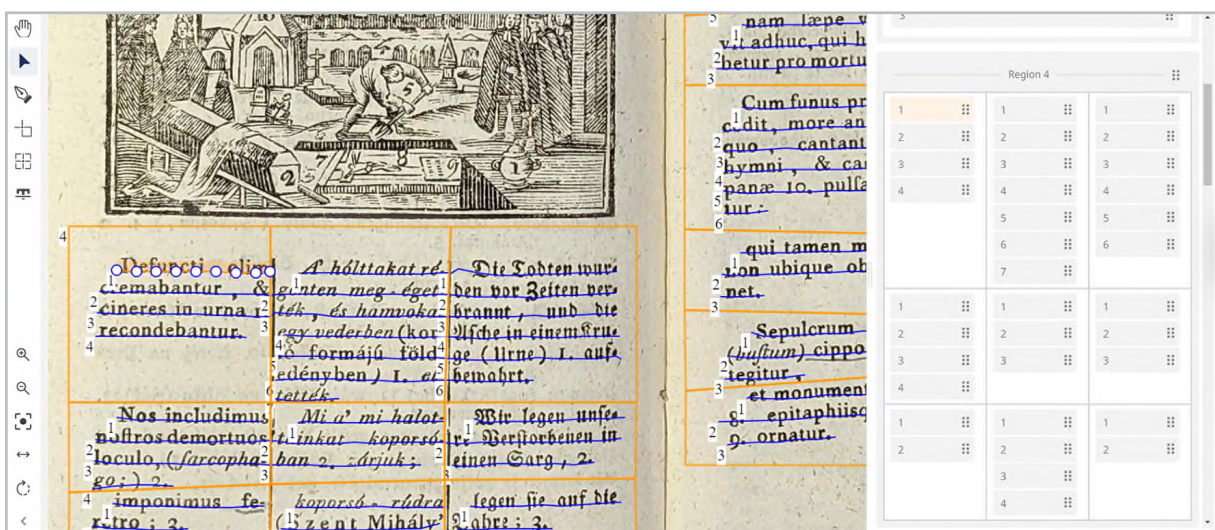 Defuncti olim
cremabantur , &
cineres in urna 1.
recondebantur.
A' hólttakat ré-
genten meg-éget
ték, és hamvoka
egy vederben (kor
só formájú föld
edényben) 1. el
tették.
Die Todten wur-
den vor Zeiten ver-
brannt, und die
Asche in einem Kru-
ge (Urne) 1. auf-
bewahrt.
Nos includimus
nostros demortuos
loculo, (sarcopha-
go;) 2.
Mi a' mi halot-
tainkat koporsó-
ban 2. zárjuk;
Wir legen unse-
re Verstorbenen in
einen Sarg, 2.
imponimus fe-
retro ; 3.
koporsó-rúdra
(Szent Mihály'
legen sie auf die
Bahre ; 3.
nam sæpe v
vit adhuc, qui h
betur pro mortu
Cum funus pr
cedit, more an
quo , cantant
hymni , & ca
panæ 10. pulsa
tur :
qui tamen m
non ubique ob
net.
Sepulcrum
(bustum) cippo
tegitur ,
et monument
8. epitaphiisq
9. ornatur.
Region 4